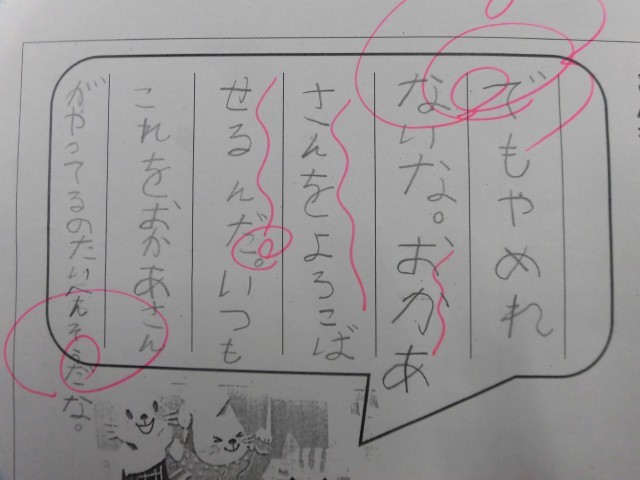 でもやめれ
ないな。おかあ
さんをよろこば
せるんだ。いつも
これをおかあさん
がやってるのたいへんそうだな。